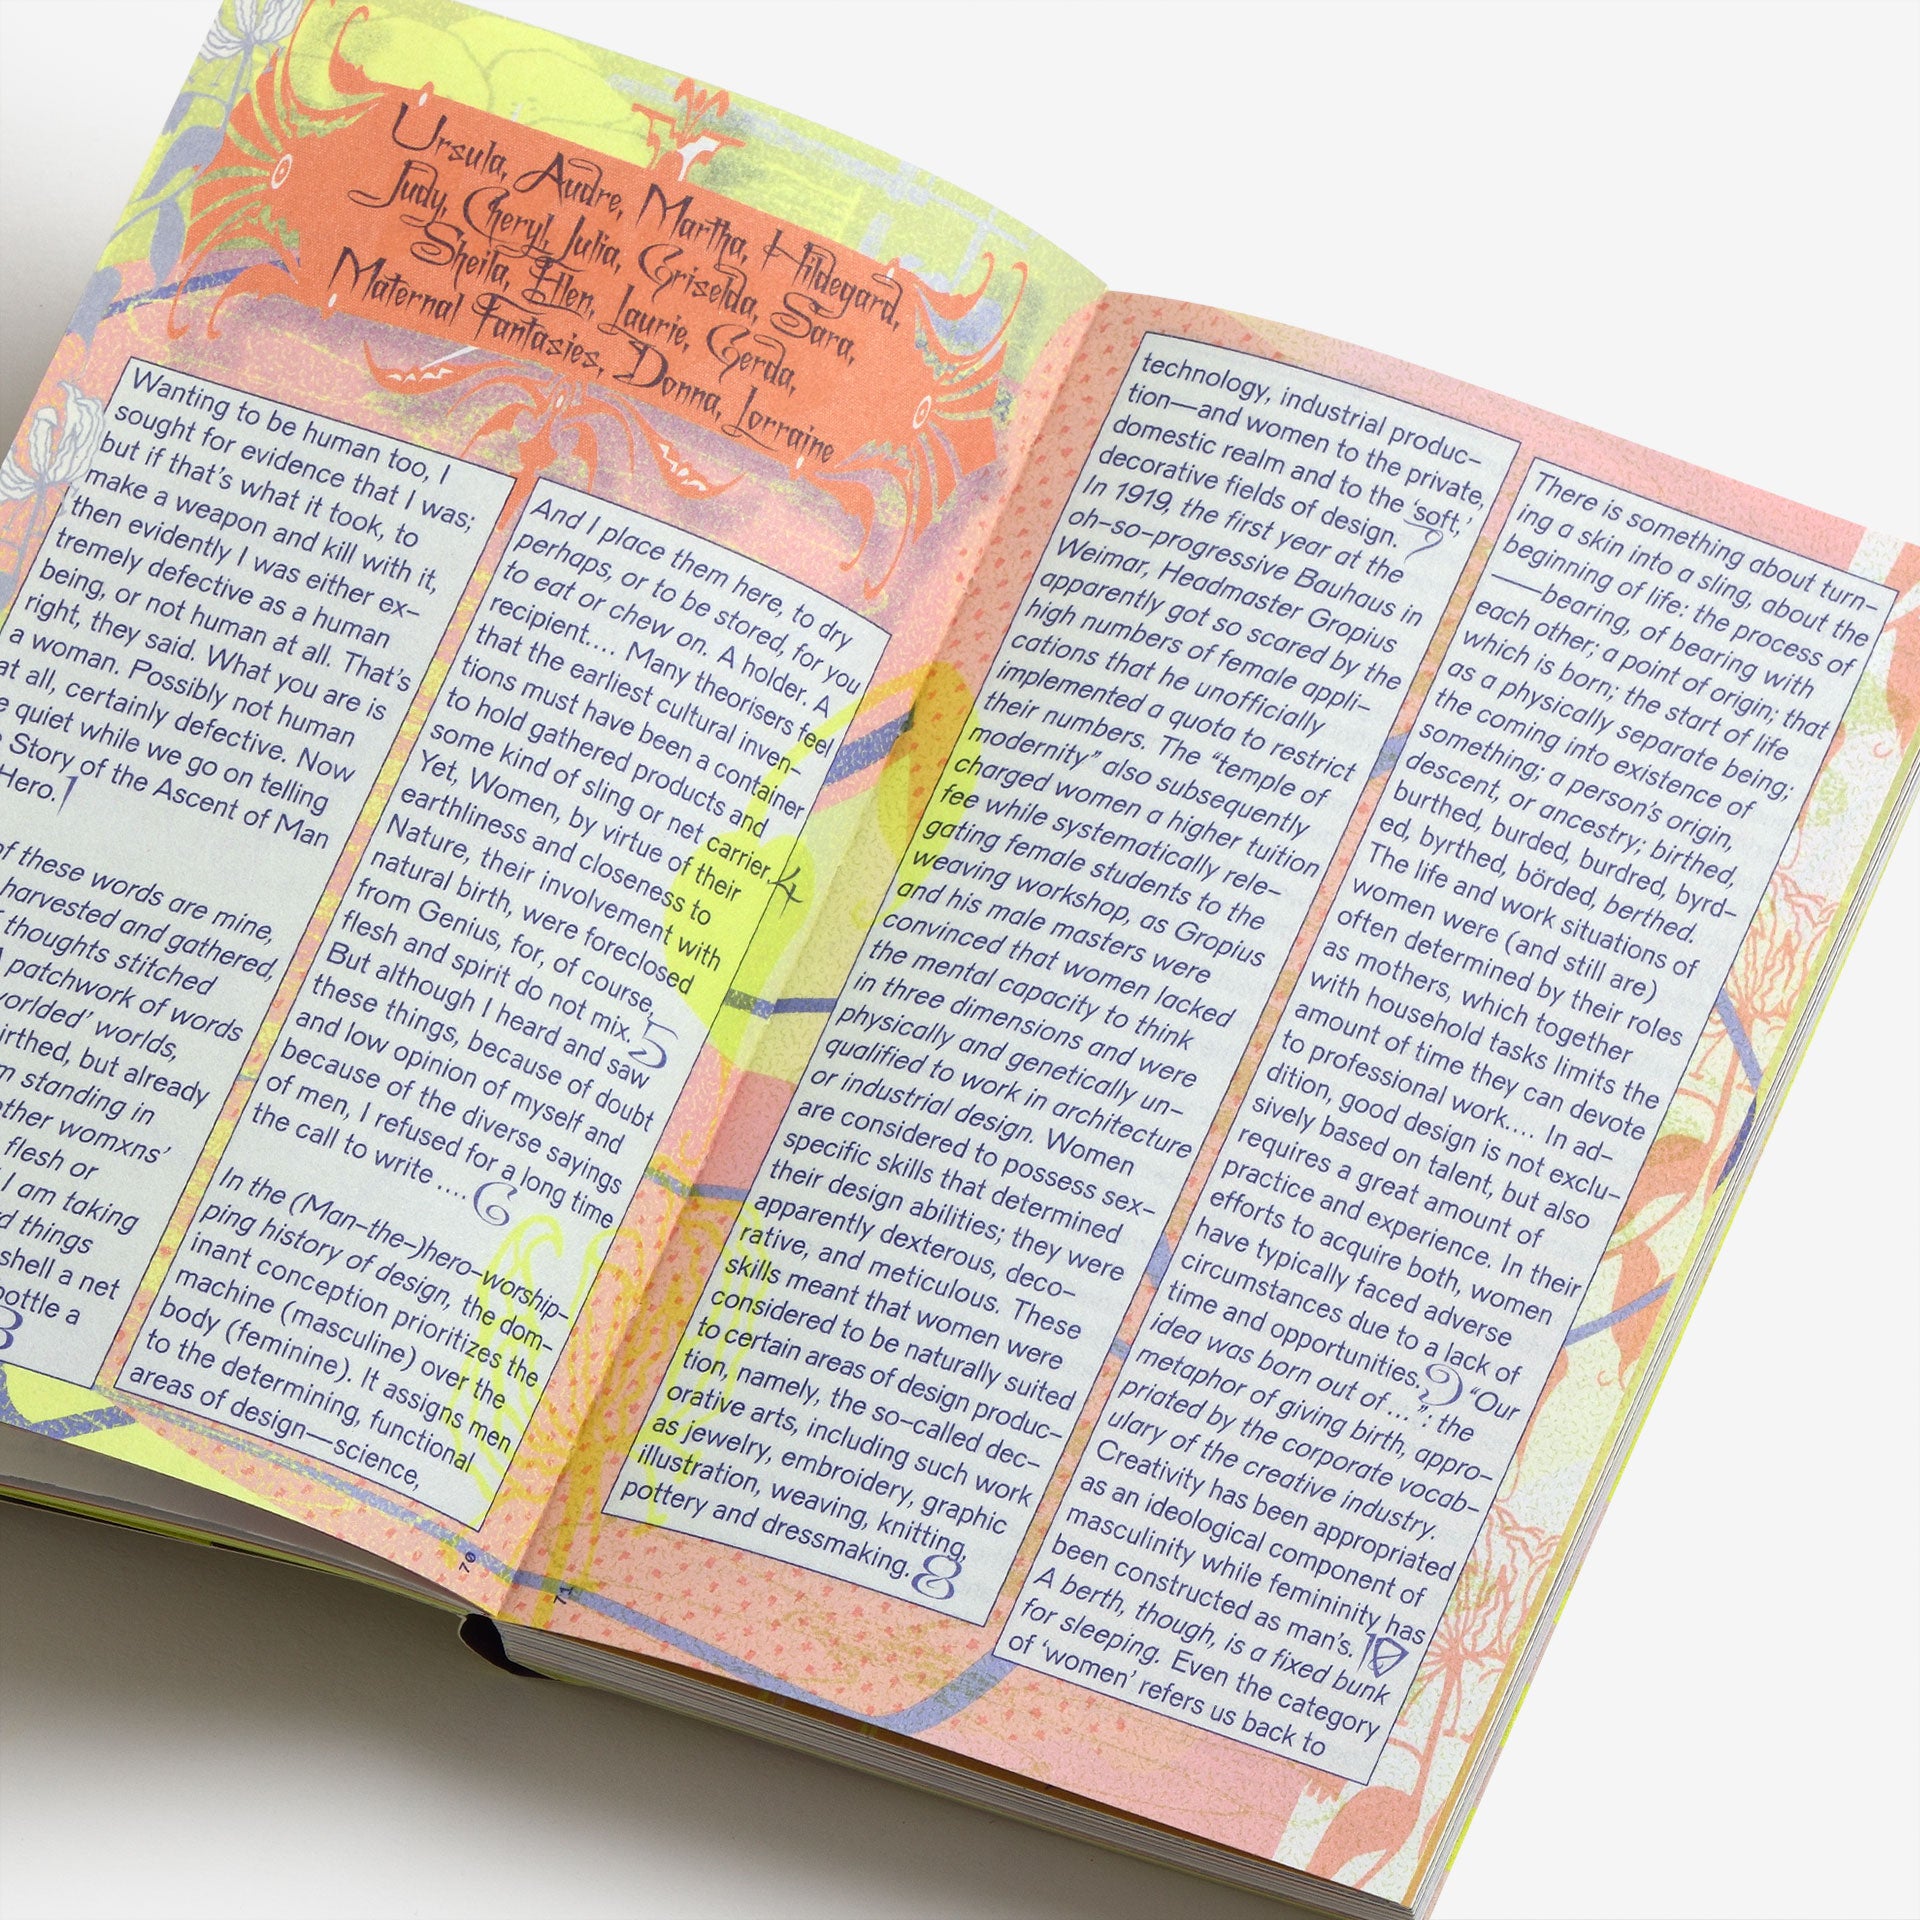 Ursula, Audre, Martha, Hildegard,
Judy, Cheryl, Julia, Griselda, Sara,
Sheila, Ellen, Laurie, Gerda,
Maternal Fantasies, Donna, Lorraine
Wanting to be human too, I
sought for evidence that I was;
but if that's what it took, to
make a weapon and kill with it,
then evidently I was either ex–
tremely defective as a human
being, or not human at all. That's
right, they said. What you are is
a woman. Possibly not human
at all, certainly defective. Now
quiet while we go on telling
Story of the Ascent of Man
Hero. 1
of these words are mine,
harvested and gathered,
thoughts stitched
patchwork of words
worlds,
but already
standing in
womxns'
flesh or
I am taking
things
shell a net
bottle a
3
And I place them here, to dry
perhaps, or to be stored, for you
to eat or chew on. A holder. A
recipient.... Many theorisers feel
that the earliest cultural inven–
tions must have been a container
to hold gathered products and
some kind of sling or net carrier. 4
Yet, Women, by virtue of their
earthliness and closeness to
Nature, their involvement with
natural birth, were foreclosed
from Genius, for, of course,
flesh and spirit do not mix. 5
But although I heard and saw
these things, because of doubt
and low opinion of myself and
because of the diverse sayings
of men, I refused for a long time
the call to write .... 6
In the (Man–the–)hero–worship–
ping history of design, the dom–
inant conception prioritizes the
machine (masculine) over the
body (feminine). It assigns men
to the determining, functional
areas of design—science,
70
technology, industrial produc–
tion—and women to the private,
domestic realm and to the 'soft,'
decorative fields of design. 7
In 1919, the first year at the
oh–so–progressive Bauhaus in
Weimar, Headmaster Gropius
apparently got so scared by the
high numbers of female appli–
cations that he unofficially
implemented a quota to restrict
their numbers. The “temple of
modernity” also subsequently
charged women a higher tuition
fee while systematically rele–
gating female students to the
weaving workshop, as Gropius
and his male masters were
convinced that women lacked
the mental capacity to think
in three dimensions and were
physically and genetically un–
qualified to work in architecture
or industrial design. Women
are considered to possess sex–
specific skills that determined
their design abilities; they were
apparently dexterous, deco–
rative, and meticulous. These
skills meant that women were
considered to be naturally suited
to certain areas of design produc–
tion, namely, the so–called dec–
orative arts, including such work
as jewelry, embroidery, graphic
illustration, weaving, knitting,
pottery and dressmaking. 8
71
There is something about turn–
ing a skin into a sling, about the
beginning of life: the process of
——bearing, of bearing with
each other; a point of origin; that
which is born; the start of life
as a physically separate being;
the coming into existence of
something; a person's origin,
descent, or ancestry; birthed,
burthed, burded, burdred, byrd–
ed, byrthed, börded, berthed.
The life and work situations of
women were (and still are)
often determined by their roles
as mothers, which together
with household tasks limits the
amount of time they can devote
to professional work.... In ad–
dition, good design is not exclu–
sively based on talent, but also
requires a great amount of
practice and experience. In their
efforts to acquire both, women
have typically faced adverse
circumstances due to a lack of
time and opportunities. 9 “Our
idea was born out of...”: the
metaphor of giving birth, appro–
priated by the corporate vocab–
ulary of the creative industry.
Creativity has been appropriated
as an ideological component of
masculinity while femininity has
been constructed as man's. 10
A berth, though, is a fixed bunk
for sleeping. Even the category
of 'women' refers us back to